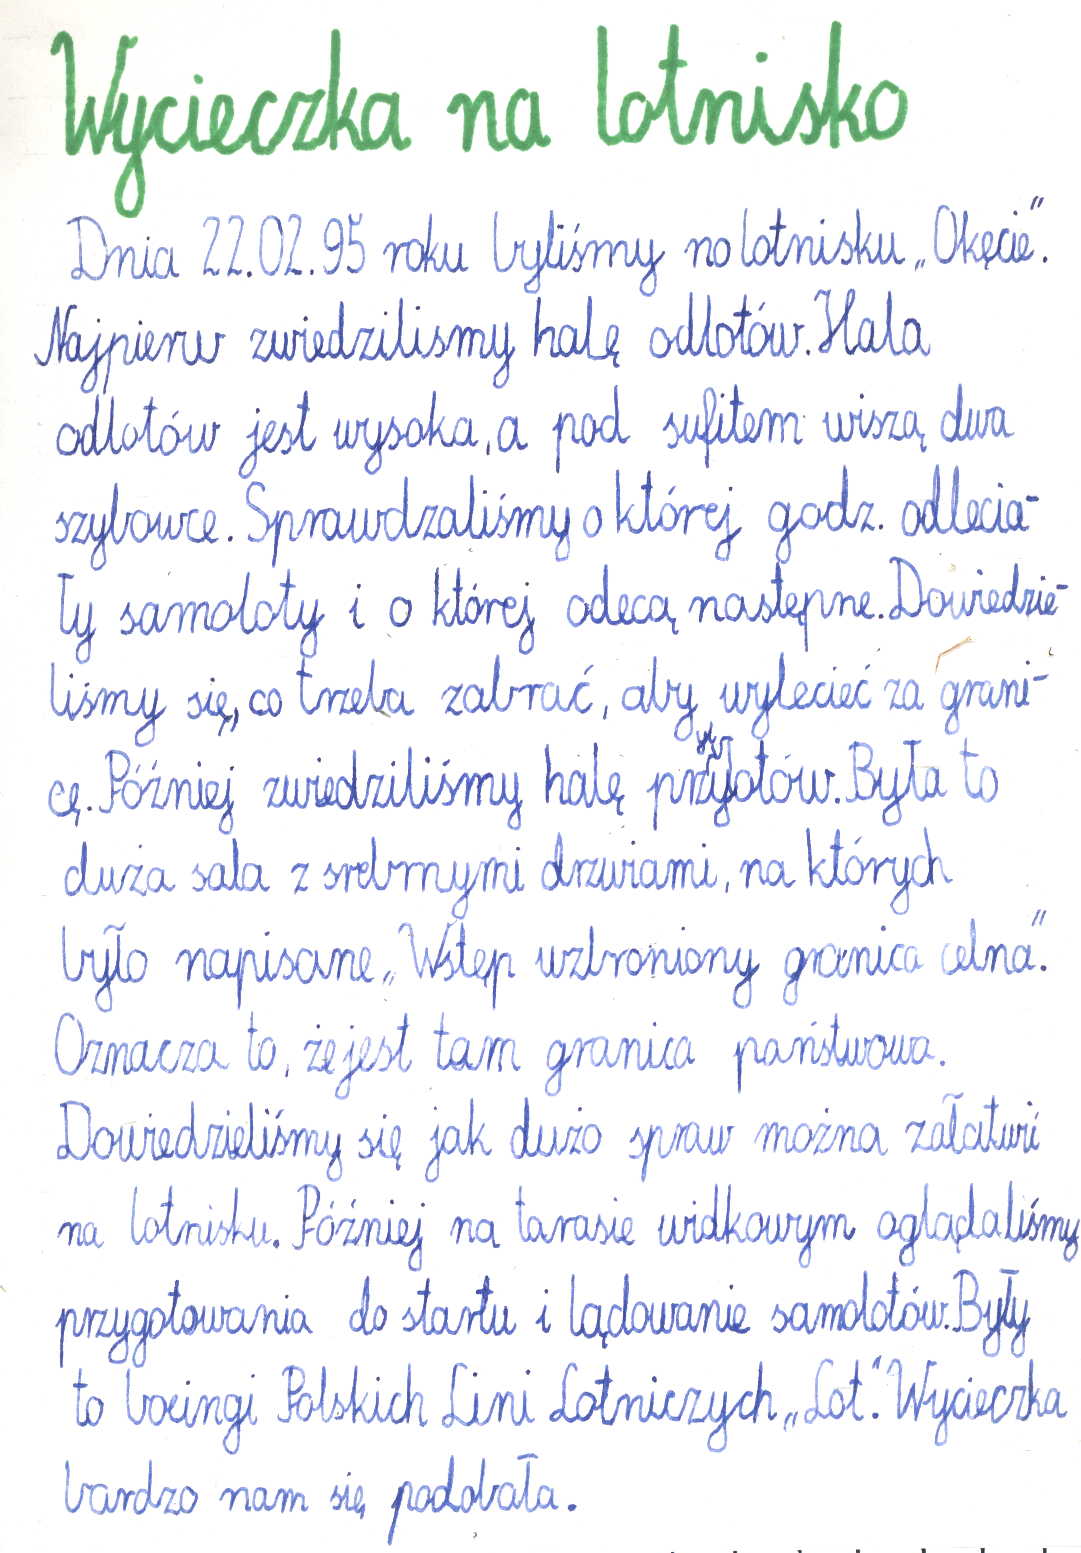 Wycieczka na lotnisko
Dnia 22.02.95 roku byliśmy na lotnisku „Okęcie”.
Najpierw zwiedzilismy halę odlotów. Hala
odlotów jest wysoka, a pod sufitem wiszą dwa
szybowce. Sprawdzaliśmy o której godz. odlecia-
ły samoloty i o której odecą następne. Dowiedzie-
liśmy się, co trzeba zabrać, aby wylecieć za grani-
cę. Później zwiedziliśmy halę przylotów. Była to
duża sala z srebrnymi drzwiami, na których
było napisane „Wstęp wzbroniony granica celna”.
Oznacza to, że jest tam granica państwowa.
Dowiedzieliśmy się jak dużo spraw można załatwić
na lotnisku. Później na tarasie widkowym oglądaliśmy
przygotowania do startu i lądowanie samolotów. Były
to boeingi Polskich Lini Lotniczych „Lot”. Wycieczka
bardzo nam się podobała.